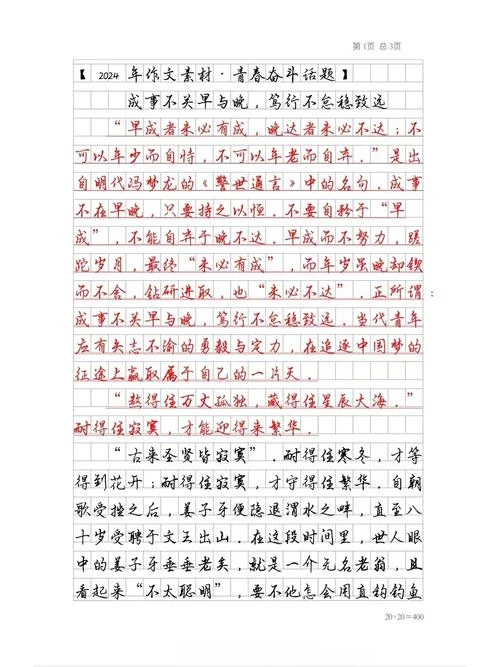 第1页 总3页
【 2024 年作文素材·青春奋斗话题】
成事不关早与晚，笃行不怠稳致远
“早成者未必有成，晚达者未必不达；不
可以年少而自恃，不可以年老而自弃．”是出
自明代冯梦龙的《警世通言》中的名句．成事
不在早晚，只要持之以恒．不要自矜于“早
成”，不能自弃于晚不达，早成而不努力，蹉
跎岁月，最终“未必有成”，而年岁虽晚却锲
而不舍，钻研进取，也“未必不达”．正所谓；
成事不关早与晚，笃行不怠稳致远．当代青年
应有矢志不渝的勇毅与定力，在追逐中国梦的
征途上赢取属于自己的一片天．
“熬得住万丈孤独，藏得住星辰大海．”
耐得住寂寞，才能迎得来繁华．
“古来圣贤皆寂寞”．耐得住寒冬，才等
得到花开；耐得住寂寞，才守得住繁华．自朝
歌受挫之后，姜子牙便隐退渭水之畔，直至八
十岁受聘于文王出山．在这段时间里，世人眼
中的姜子牙垂垂老矣，就是一个无名老翁，且
看起来“不太聪明”，要不他怎会用直钩钓鱼
20×20=400